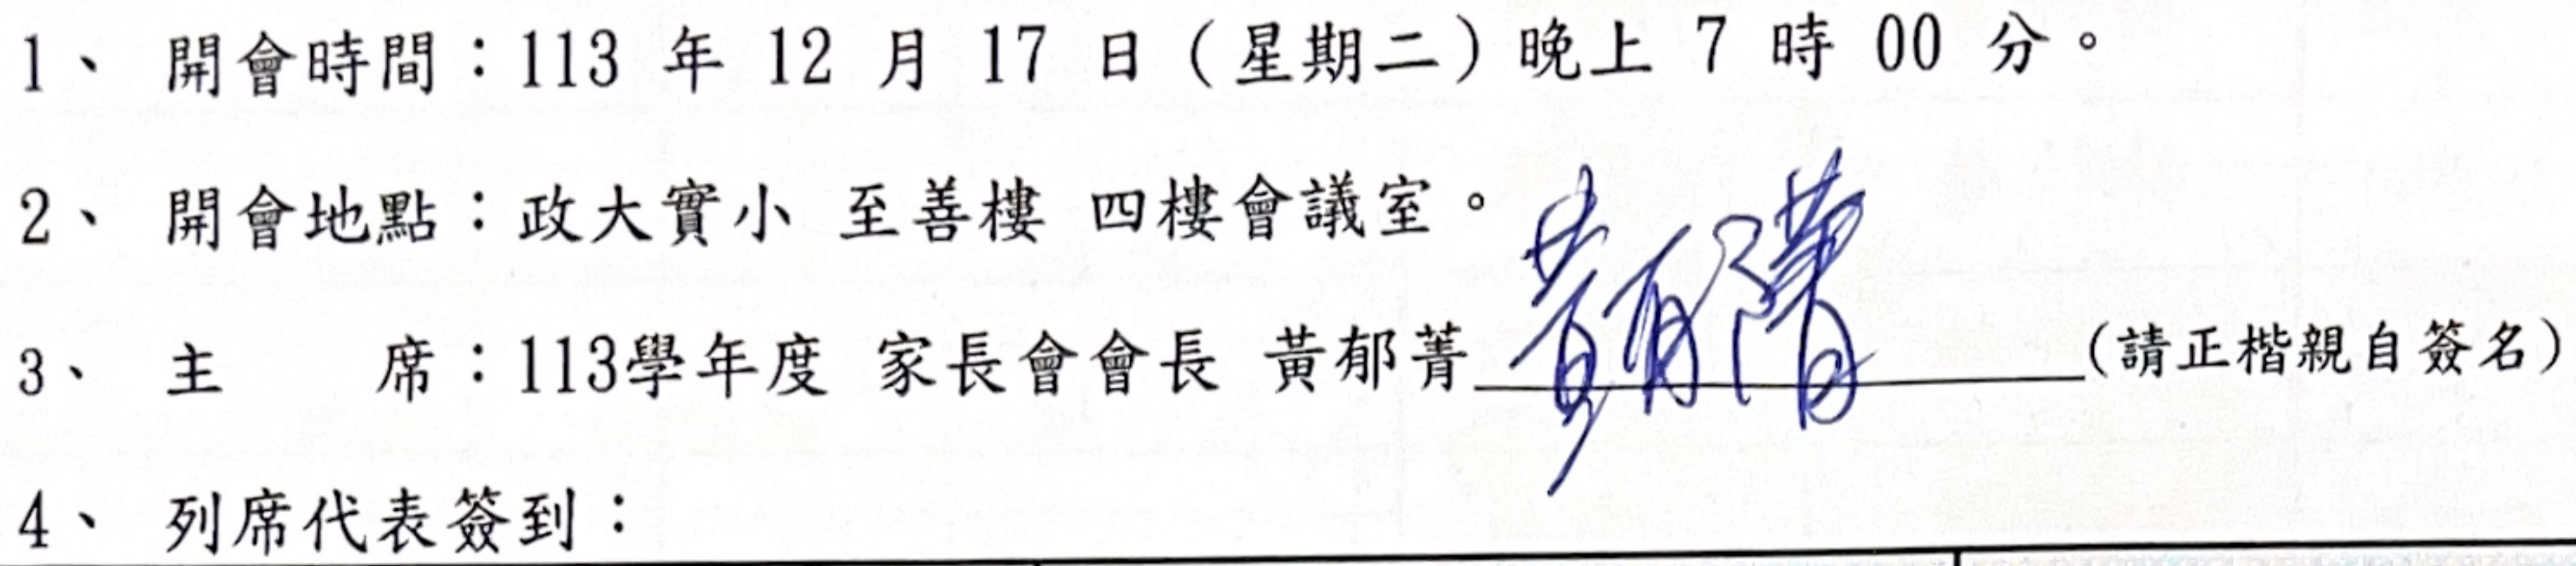 1、 開會時間：113 年 12 月 17 日（星期二）晚上 7 時 00 分。
2、 開會地點：政大實小 至善樓 四樓會議室。
3、 主　　席：113學年度 家長會會長 黃郁菁 黃郁菁 (請正楷親自簽名)
4、 列席代表簽到：